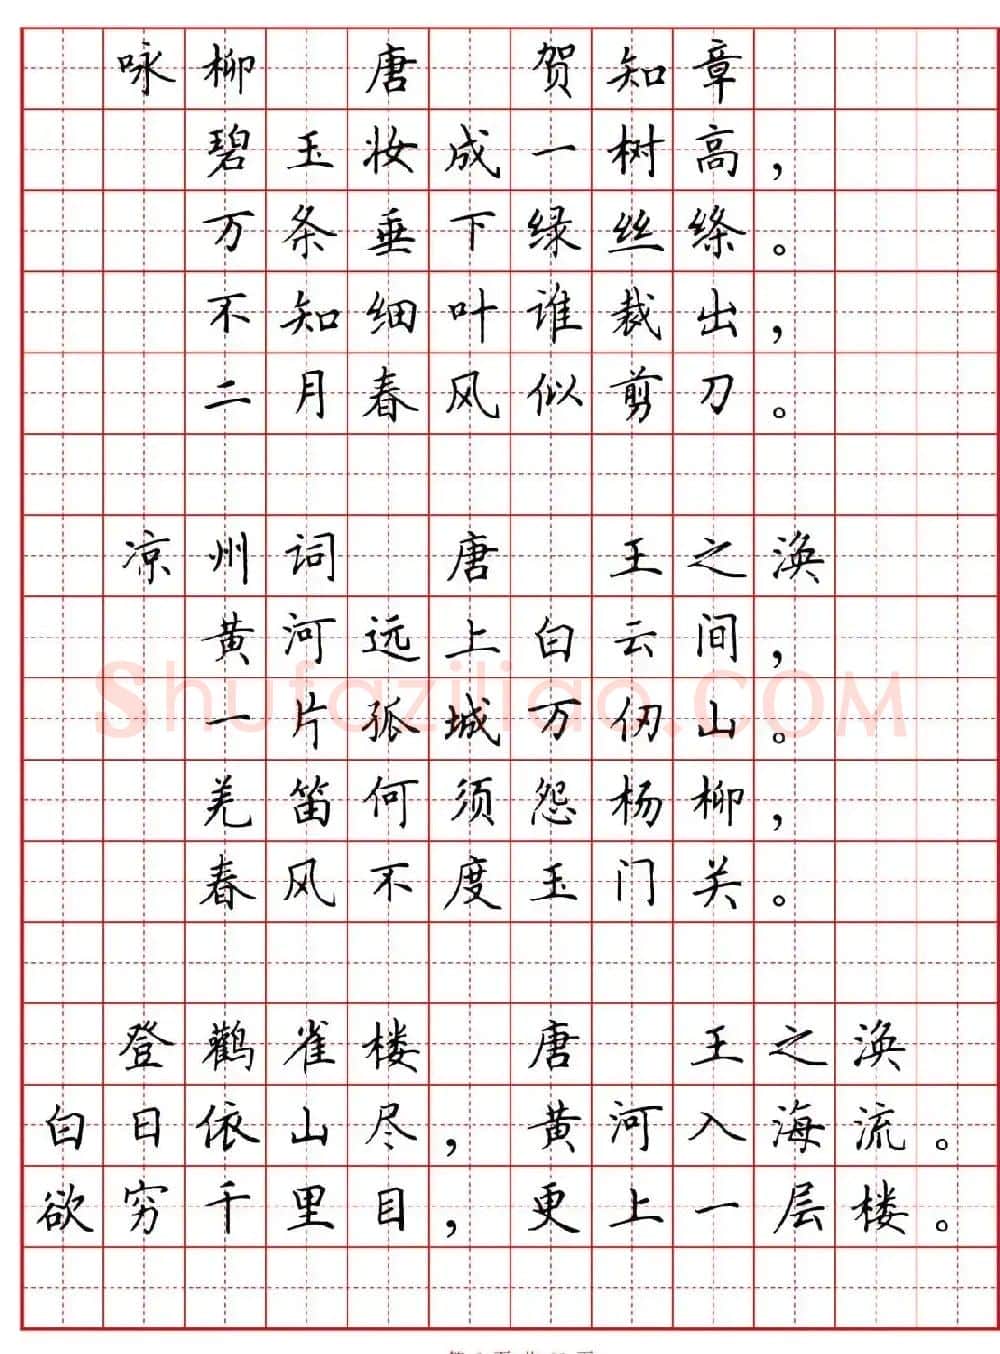 咏柳 唐 贺知章
碧玉妆成一树高，
万条垂下绿丝绦。
不知细叶谁裁出，
二月春风似剪刀。
凉州词 唐 王之涣
黄河远上白云间，
一片孤城万仞山。
羌笛何须怨杨柳，
春风不度玉门关。
登鹳雀楼 唐 王之涣
白日依山尽，黄河入海流。
欲穷千里目，更上一层楼。
Shufaziliao.COM